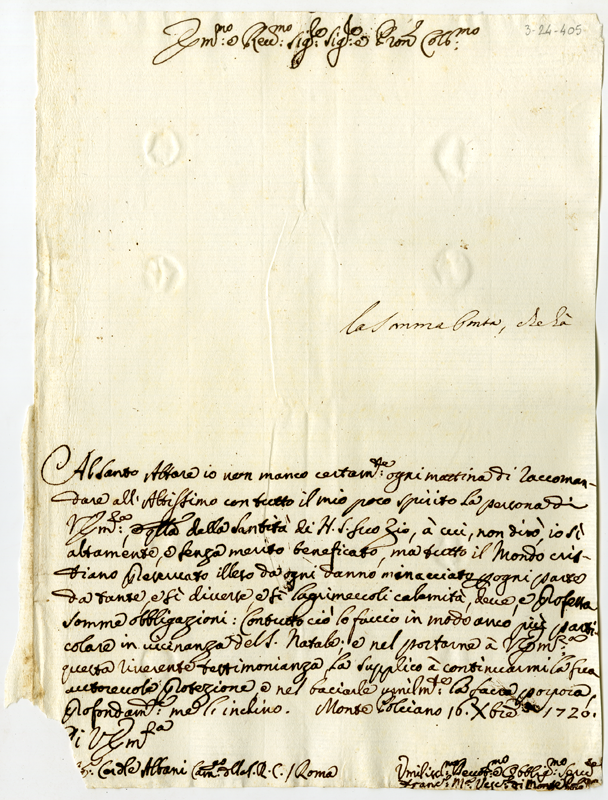 3-24-405
Em:mo e Rev:mo Sig:re Sig:re e Pron Col:mo
la somma bontà, che hà
Al santo Altare io non manco certam:te ogni mattina di raccoman-
dare all'Altissimo con tutto il mio poco spirito la persona di
V. Em:za della Santità di N. S. suo Zio, à cui, non dirò, io sì
altamente, e senza merito beneficato, ma tutto il Mondo cris-
tiano preservato illeso da ogni danno minacciato p ogni parte
da tante e sì diverse, e sì lagrimevoli calamità, deve, e professa
somme obbligazioni: Contutto ciò lo faccio in modo anco più parti
colare in vicinanza del S. Natale: e nel portarne à V. Em:za
questa riverente testimonianza la supplico à continuarmi la sua
autorevole Protezione, e nel baciarle umilm:te la sacra porpora,
profondam:te me le inchino. Monte Pulciano 16. Xbre 1720.
di V. Em:za
Card:le Albani Cam:o della S. R. C. / Roma
Umiliss:mo Devot:mo Obblig:mo Serv:re
Franc:o M:a Vesc:o di Monte Pulc:no